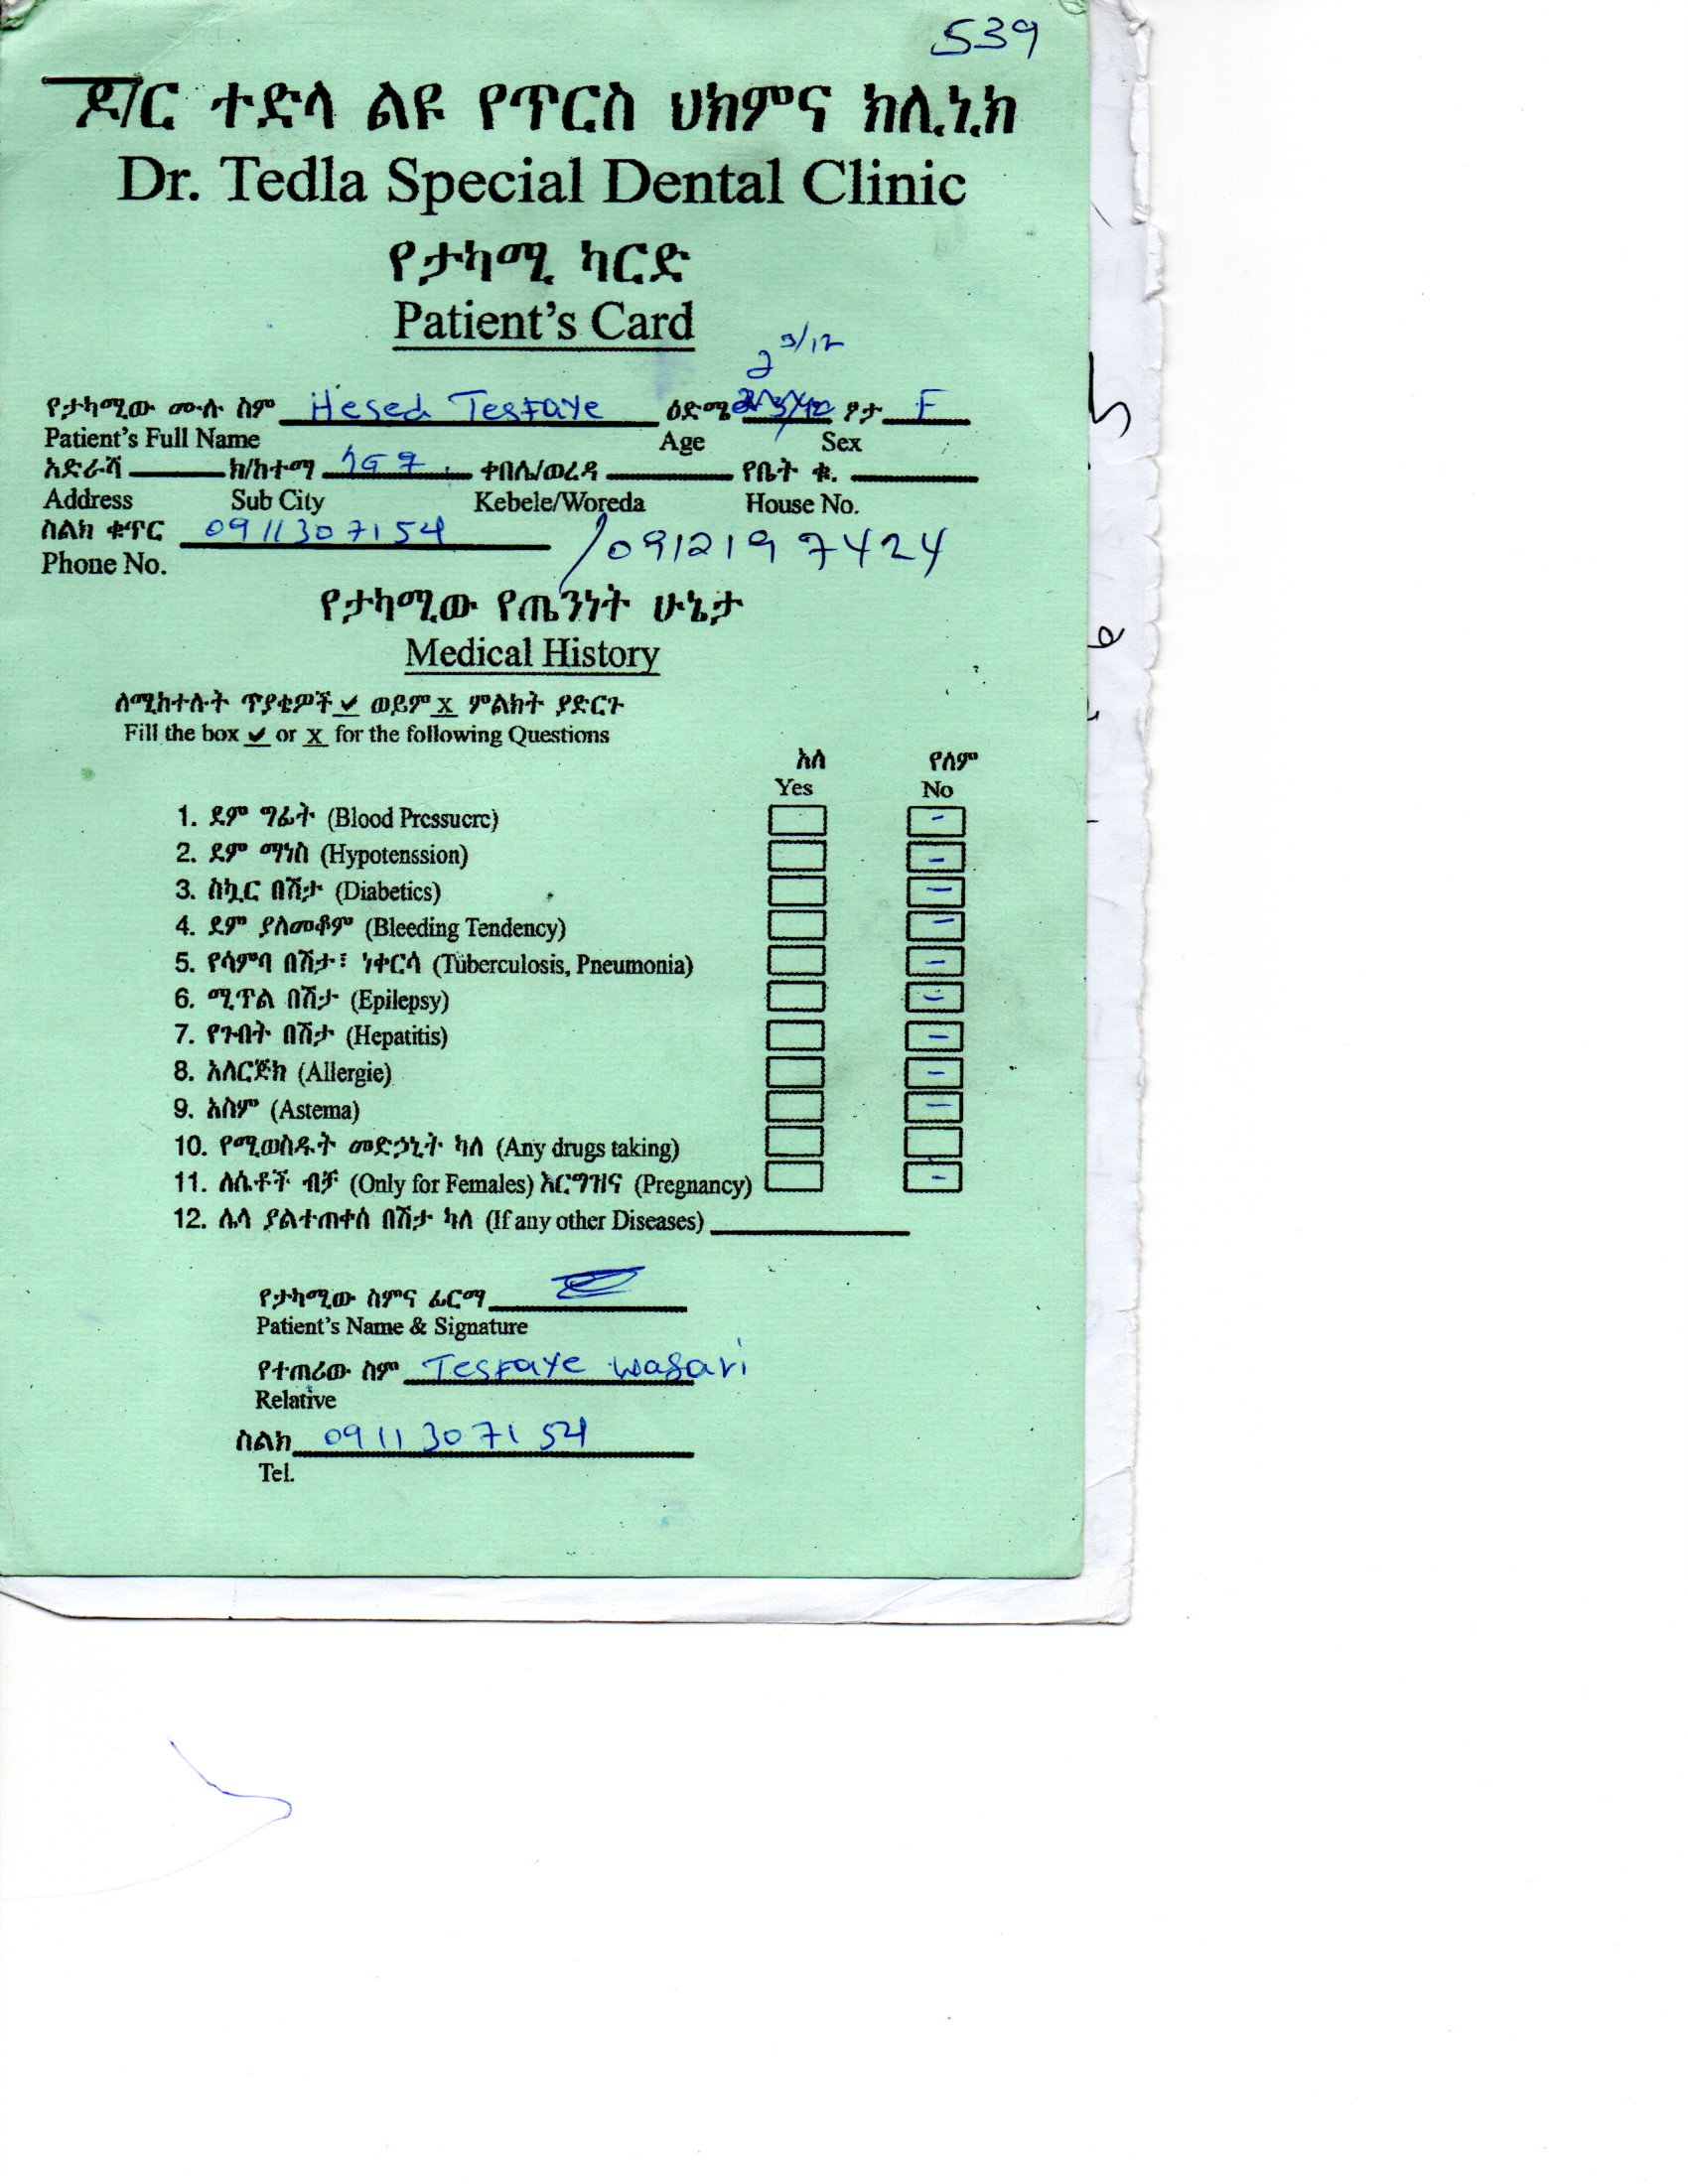 539
ዶ/ር ተድላ ልዩ የጥርስ ህክምና ክሊኒክ
Dr. Tedla Special Dental Clinic
የታካሚ ካርድ
Patient's Card
2 3/12
የታካሚው ሙሉ ስም Hesed Tesfaye ዕድሜ ፆታ F
Patient's Full Name Age Sex
አድራሻ ክ/ከተማ ቀበሌ/ወረዳ የቤት ቁ.
Address Sub City Kebele/Woreda House No.
ስልክ ቁጥር 0911307154 /0912197424
Phone No.
የታካሚው የጤንነት ሁኔታ
Medical History
ለሚከተሉት ጥያቄዎች ✔ ወይም X ምልክት ያድርጉ
Fill the box ✔ or X for the following Questions
አለ የለም
Yes No
1. ደም ግፊት (Blood Pressuere) -
2. ደም ማነስ (Hypotenssion) -
3. ስኳር በሽታ (Diabetics) -
4. ደም ያለመቆም (Bleeding Tendency) -
5. የሳምባ በሽታ፣ ነቀርሳ (Tuberculosis, Pneumonia) -
6. ሚጥል በሽታ (Epilepsy) -
7. የጉበት በሽታ (Hepatitis) -
8. አለርጅክ (Allergie) -
9. አስም (Astema) -
10. የሚወስዱት መድኃኒት ካለ (Any drugs taking)
11. ለሴቶች ብቻ (Only for Females) እርግዝና (Pregnancy) -
12. ሌላ ያልተጠቀሰ በሽታ ካለ (If any other Diseases)
የታካሚው ስምና ፊርማ
Patient's Name & Signature
የተጠሪው ስም Tesfaye Wasari
Relative
ስልክ 0911307154
Tel.